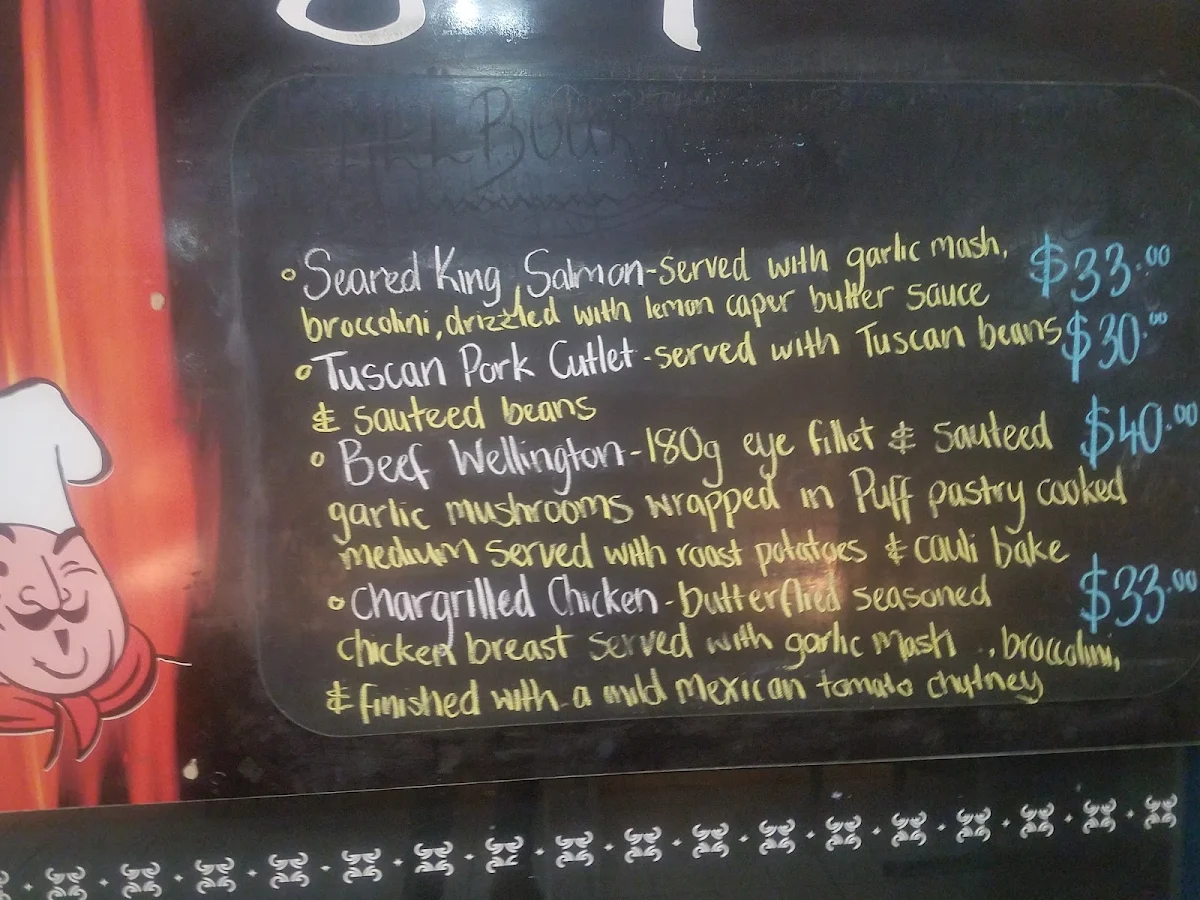 Seared King Salmon-served with garlic mash, $33.00
broccolini, drizzled with lemon caper butter sauce
Tuscan Pork Cutlet-served with Tuscan beans $30.00
& sauteed beans
Beef Wellington-180g eye fillet & sauteed $40.00
garlic mushrooms wrapped in Puff pastry cooked
medium served with roast potatoes & cauli bake
Chargrilled Chicken-butterflied seasoned $33.00
chicken breast served with garlic mash ., broccolini,
& finished with a mild Mexican tomato chutney